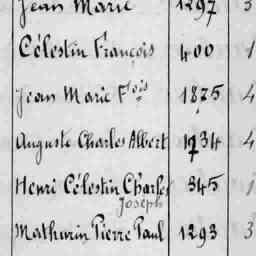 Jean Marie 1297 3
Célestin François 400 1
Jean Marie Fois 1875 4
Auguste Charles Albert 1734 4
Henri Célestin Charles 345 1
Joseph
Mathurin Pierre Paul 1293 3